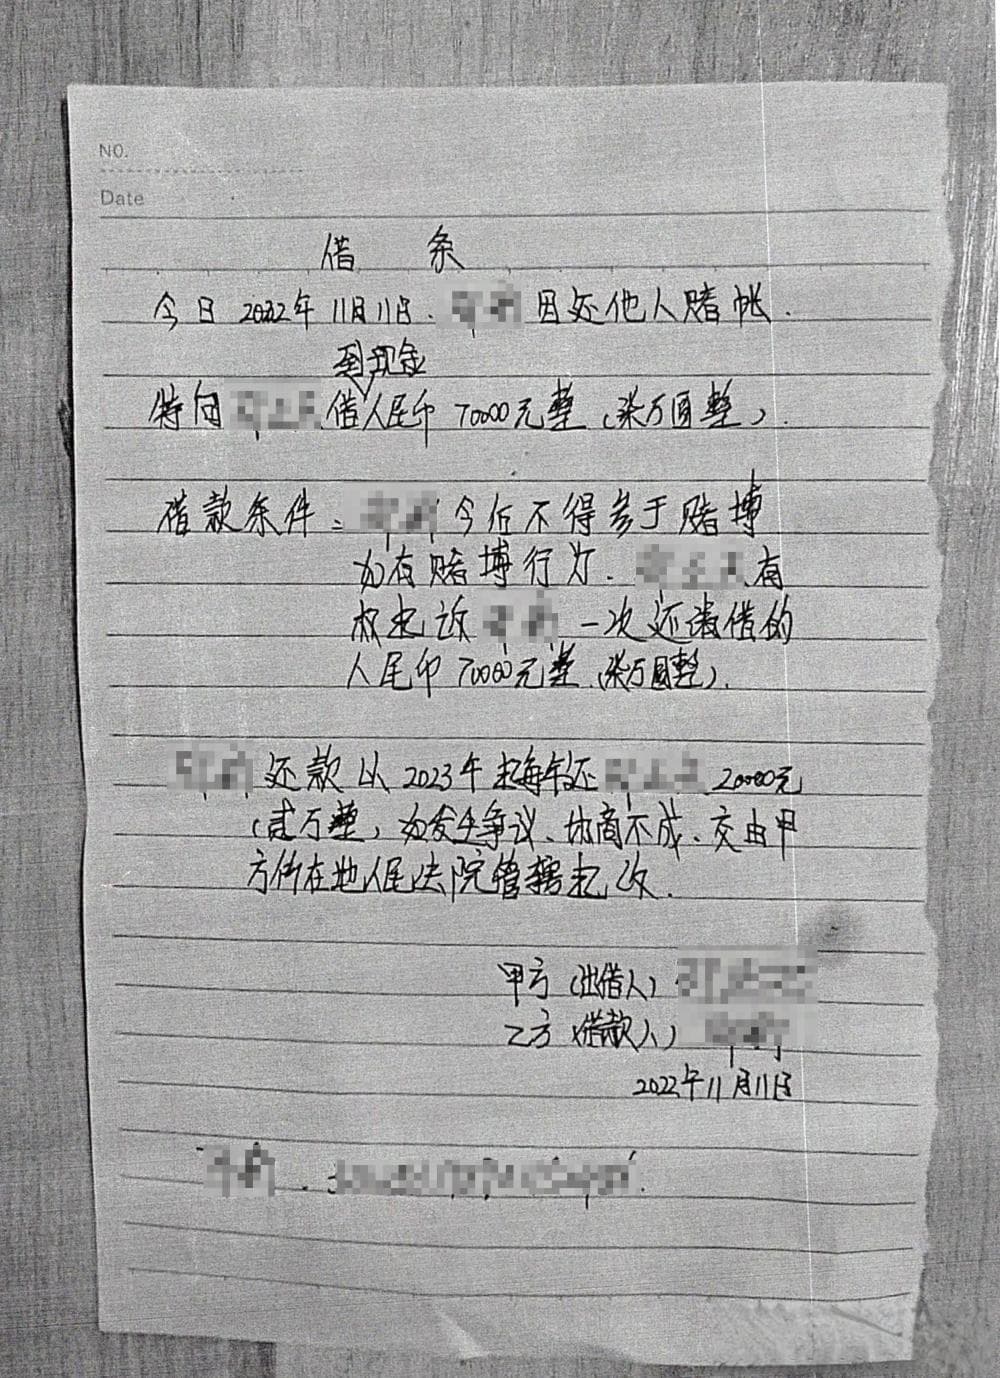 NO.
Date
借 条
今日 2022年11月11日.
因处他人赌帐.
到现金
特向
借人民币 70000元整（柒万圆整）.
借款条件:
今后不得参于赌博
如有赌博行为.
有
权起诉
一次还清借的
人民币 70000元整.（柒万圆整）.
还款从2023年起每年还
20000元
（贰万整）如发生争议、协商不成、交由甲
方所在地人民法院管辖起诉.
甲方（出借人）
乙方（借款人）
2022年11月11日